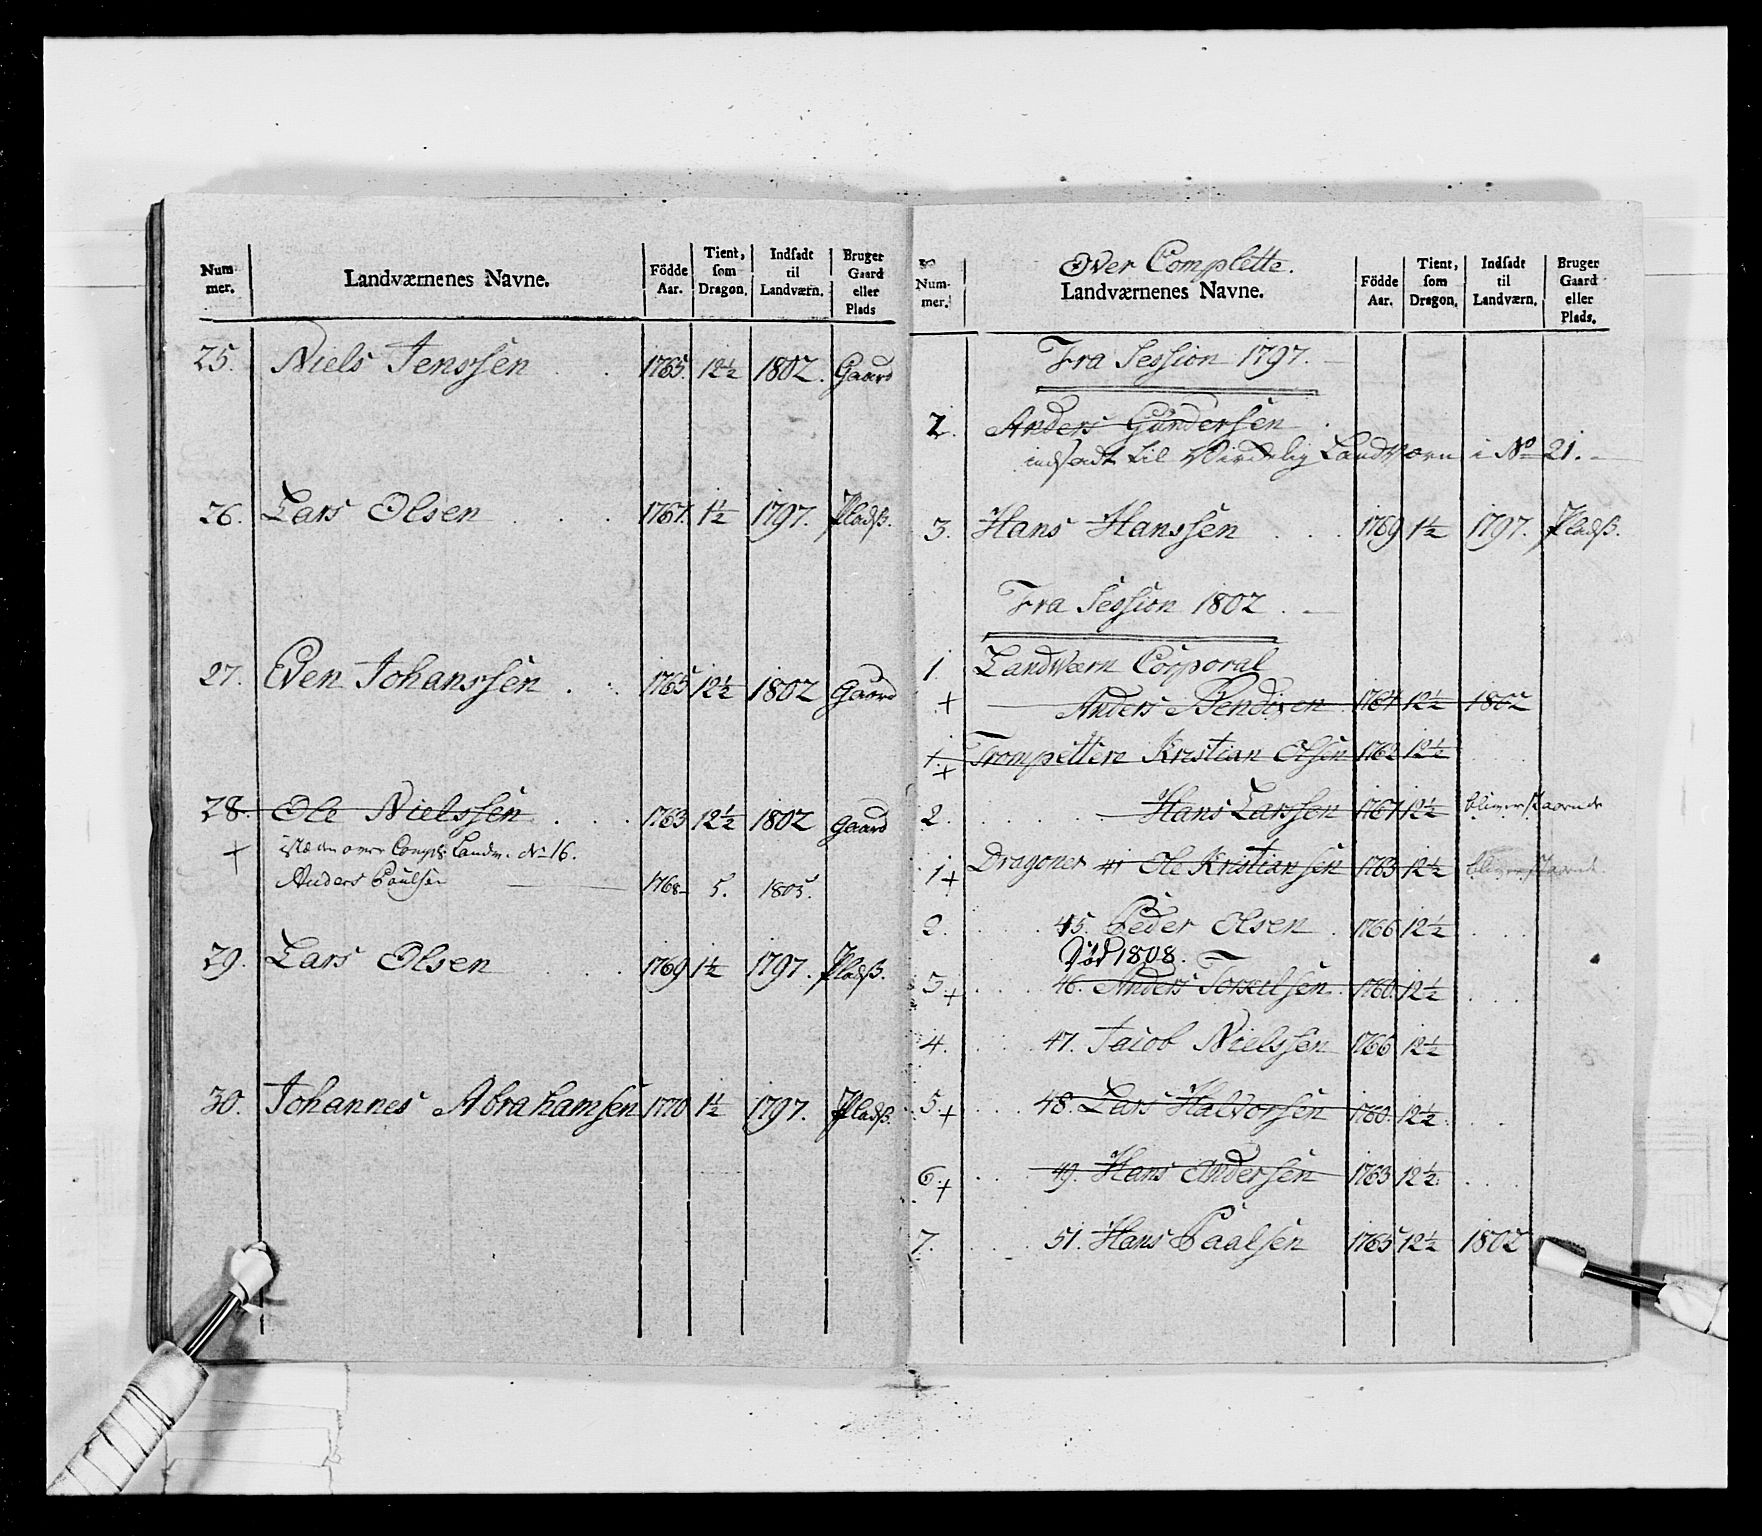 Num-
mer.
Landværnenes Navne.
Födde
Aar.
Tient,
som
Dragon.
Indsadt
til
Landværn.
Bruger
Gaard
eller
Plads
25. Niels Jenssen 1765. 12½ 1802. Gaard
26. Lars Olsen 1767. 1½ 1797. Pladß.
27. Even Johanssen 1765 12½ 1802 Gaard
28. Ole Nielssen 1763 12½ 1802 Gaard
+ over Compl: Landv. No 16.
Anders Poulsen 1768 5. 1805.
29. Lars Olsen 1769 1½ 1797. Pladß.
30. Johannes Abrahamsen 1770 1½ 1797. Pladß.
Num-
mer.
Over Complette.
Landværnenes Navne.
Födde
Aar.
Tient,
som
Dragon.
Indsadt
til
Landværn.
Bruger
Gaard
eller
Plads.
Fra Session 1797.
2. Anders Gundersen
indsadt til Virkelig Landværn i No 21.
3. Hans Hanssen 1769 1½ 1797. Pladß.
Fra Session 1802.
1 Landværn Corporal
+ Anders Bendixen 1764 12½ 1802
1. + Trompettere Kristian Olsen 1762 12½
2. Hans Larssen 1767 12½ bliver staaende
1 + Dragoner 41 Ole Kristiansen 1763 12½ bliver staaende
2. 45. Peder Olsen 1766 12½
Död 1808.
3. + 46. Anders Torkelsen 1760. 12½
4. 47. Jacob Nielssen 1766 12½
5 + 48. Lars Halvorsen 1760. 12½
6. + 49. Hans Andersen 1763 12½
7. 51. Hans Paalsen 1765 12½ 1802